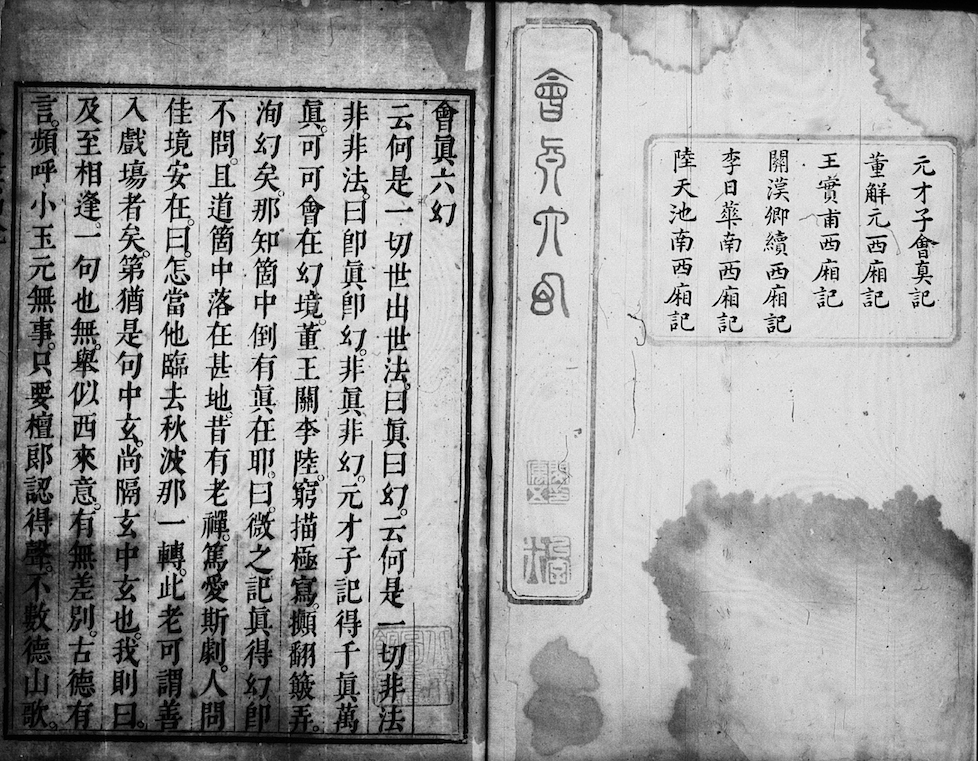 元才子會真記
董解元西廂記
王實甫西廂記
關漢卿續西廂記
李日華南西廂記
陸天池南西廂記
會眞六幻
會眞六幻
云何是一切世出世法。曰眞曰幻。云何是一切非法
非非法。曰卽眞卽幻。非眞非幻。元才子記得千眞萬
眞。可可會在幻境。董王關李陸。窮描極寫。攧翻簸弄。
洵幻矣。那知箇中倒有眞在耶。曰。微之記眞得幻卽
不問。且道箇中落在甚地。昔有老禪。篤愛斯劇。人問
佳境安在。曰。怎當他臨去秋波那一轉。此老可謂善
入戲塲者矣。第猶是句中玄。尚隔玄中玄也。我則曰。
及至相逢。一句也無。舉似西來意。有無差別。古德有
言。頻呼小玉元無事。只要檀郎認得聲。不數德山歌。